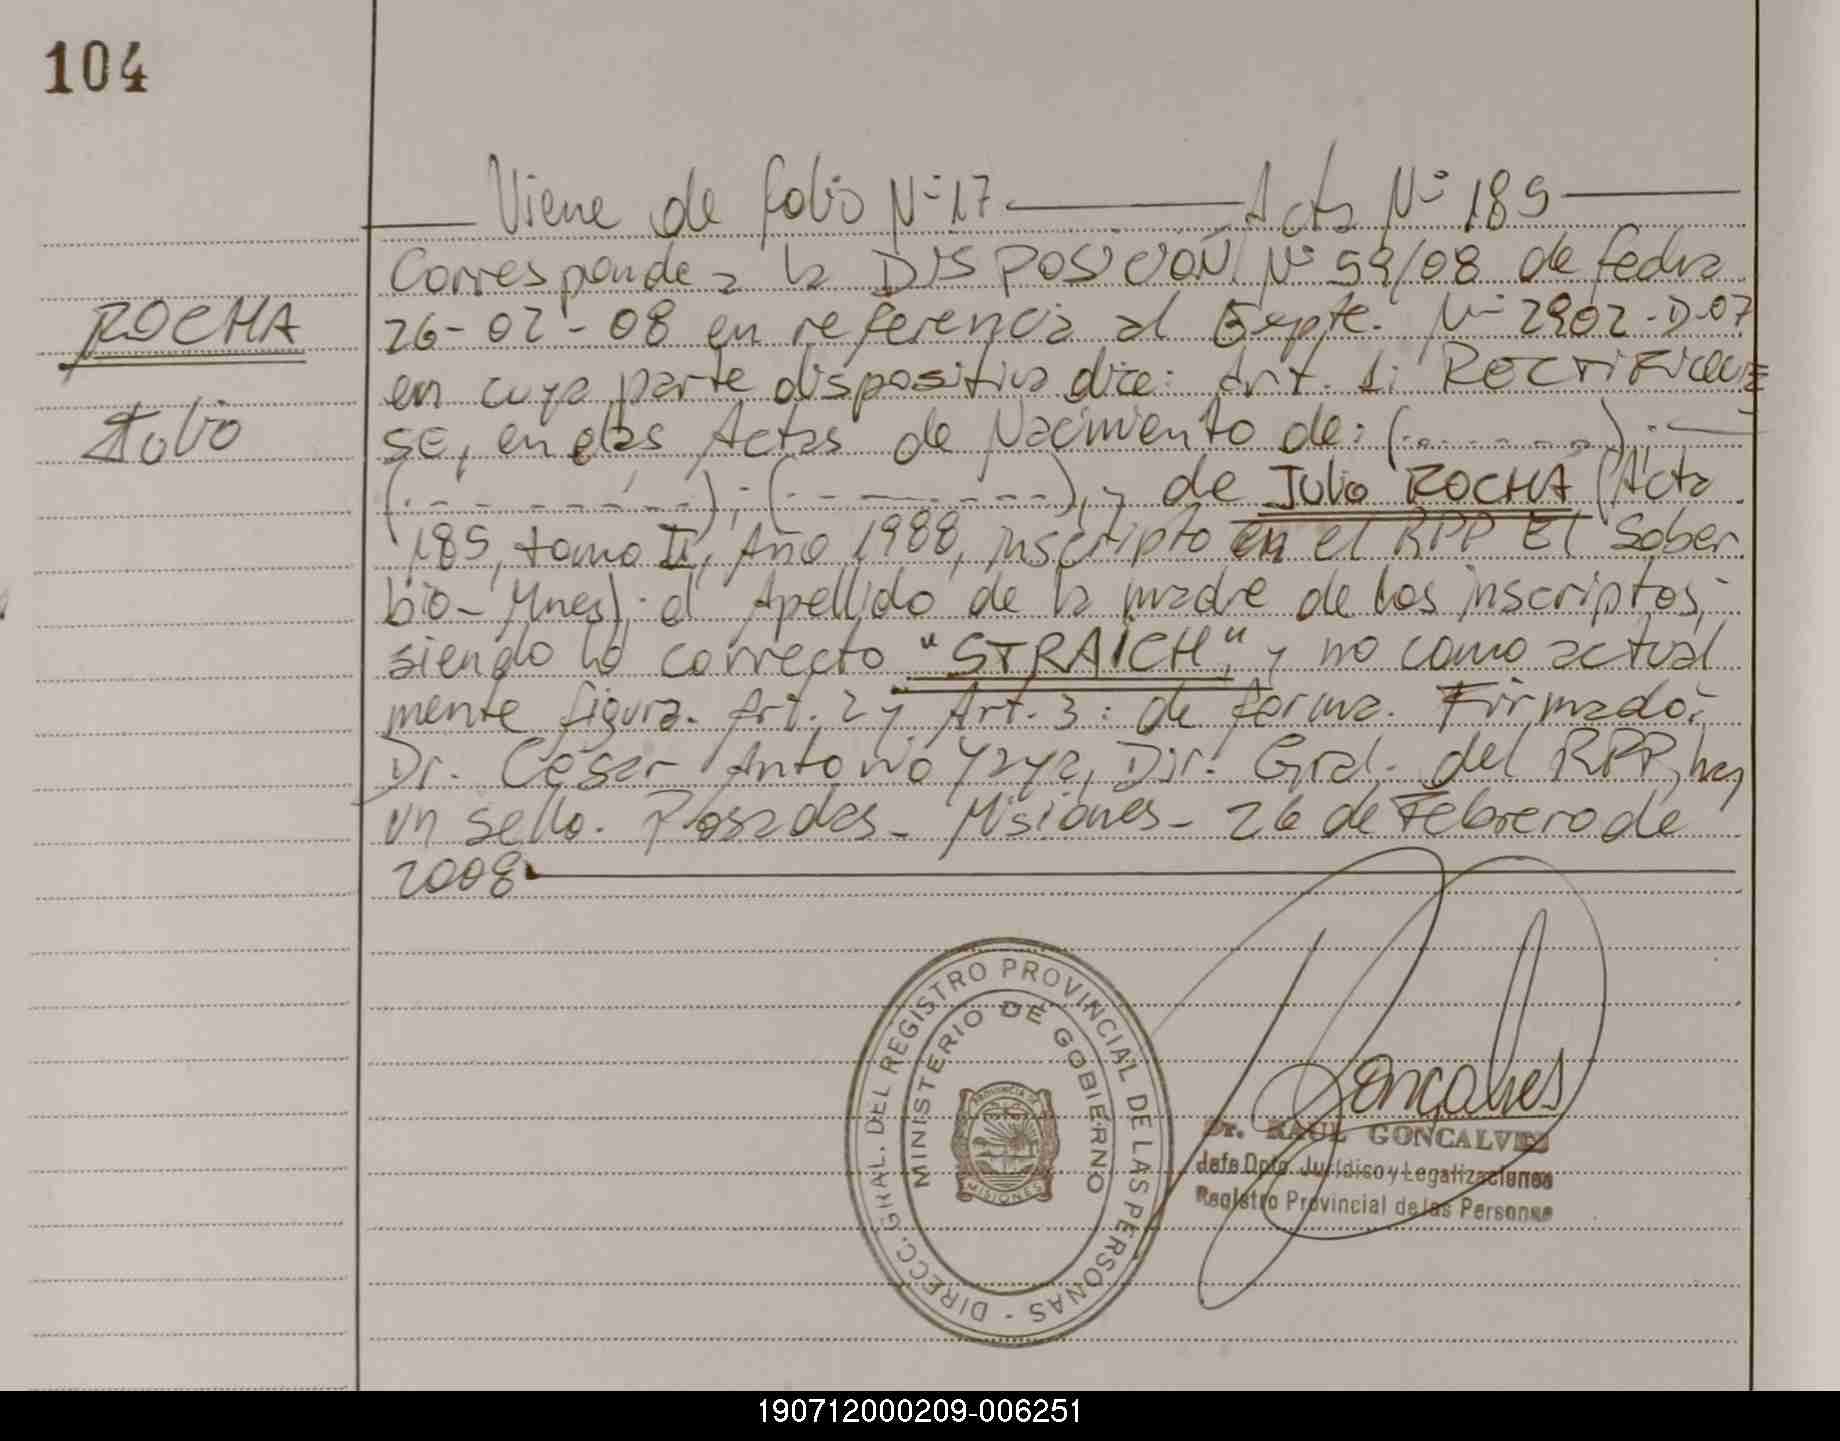 104
Viene de folio Nº 17 Acta Nº 185
Corresponde a la DISPOSICIÓN Nº 59/08 de fecha
ROCHA
26-02-08 en referencia al Expte. Nº 2902-D-07
en cuya parte dispositiva dice: Art. 1: RECTIFICAR
Julio
SE, en las Actas de Nacimiento de: (.......).
(.........); (.........), y de Julio ROCHA (Acta
185, tomo II, Año 1988, inscripto en el RPP El Sober
bio-Mnes); el Apellido de la madre de los inscriptos,
siendo lo correcto "STRAICH", y no como actual
mente figura. Art. 2 y Art. 3: de forma. Firmado:
Dr. César Antonio Yaya, Dir. Gral. del RPP, hay
un sello. Posadas - Misiones - 26 de Febrero de
2008
DIRECC. GRAL. DEL REGISTRO PROVINCIAL DE LAS PERSONAS -
MINISTERIO DE GOBIERNO
PROVINCIA DE
MISIONES
Goncalves
Dr. RAUL GONCALVES
Jefe Dpto. Jurídico y Legalizaciones
Registro Provincial de las Personas
190712000209-006251